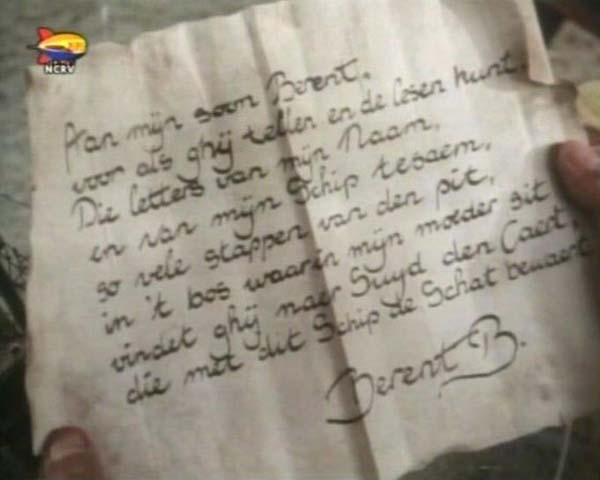 NCRV
Aan mijn soon Berent,
voor als ghij tellen en de lesen kunt.
Die letters van mijn Naam,
en van mijn Schip tesaem,
so vele stappen van den pit,
in 't bos waarin mijn moeder sit
vindet ghij naer Suyd den Caert,
die met dit Schip de Schat bewaert
Berent B.